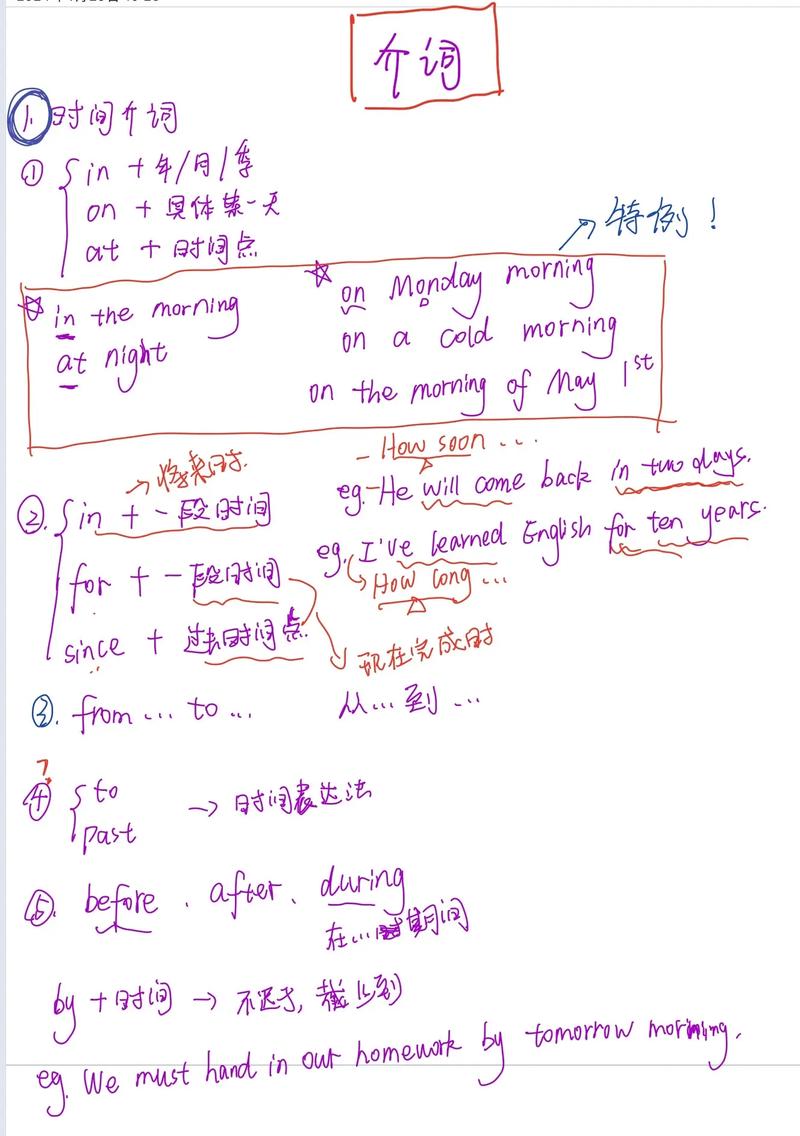 介词
1. 时间介词
① in + 年/月/季
on + 具体某一天
at + 时间点
→ 特例！
☆ in the morning
at night
☆ on Monday morning
on a cold morning
on the morning of May 1st
→ 将来时
② in + 一段时间
for + 一段时间
since + 过去时间点
- How soon ...
eg. -He will come back in two days.
eg. I've learned English for ten years.
How long ...
现在完成时
③. from ... to ... 从...到...
?
④ to
past
→ 时间表达法
⑤. before . after . during
在...期间
by + 时间 → 不迟于, 截止到
eg. We must hand in our homework by tomorrow morning.